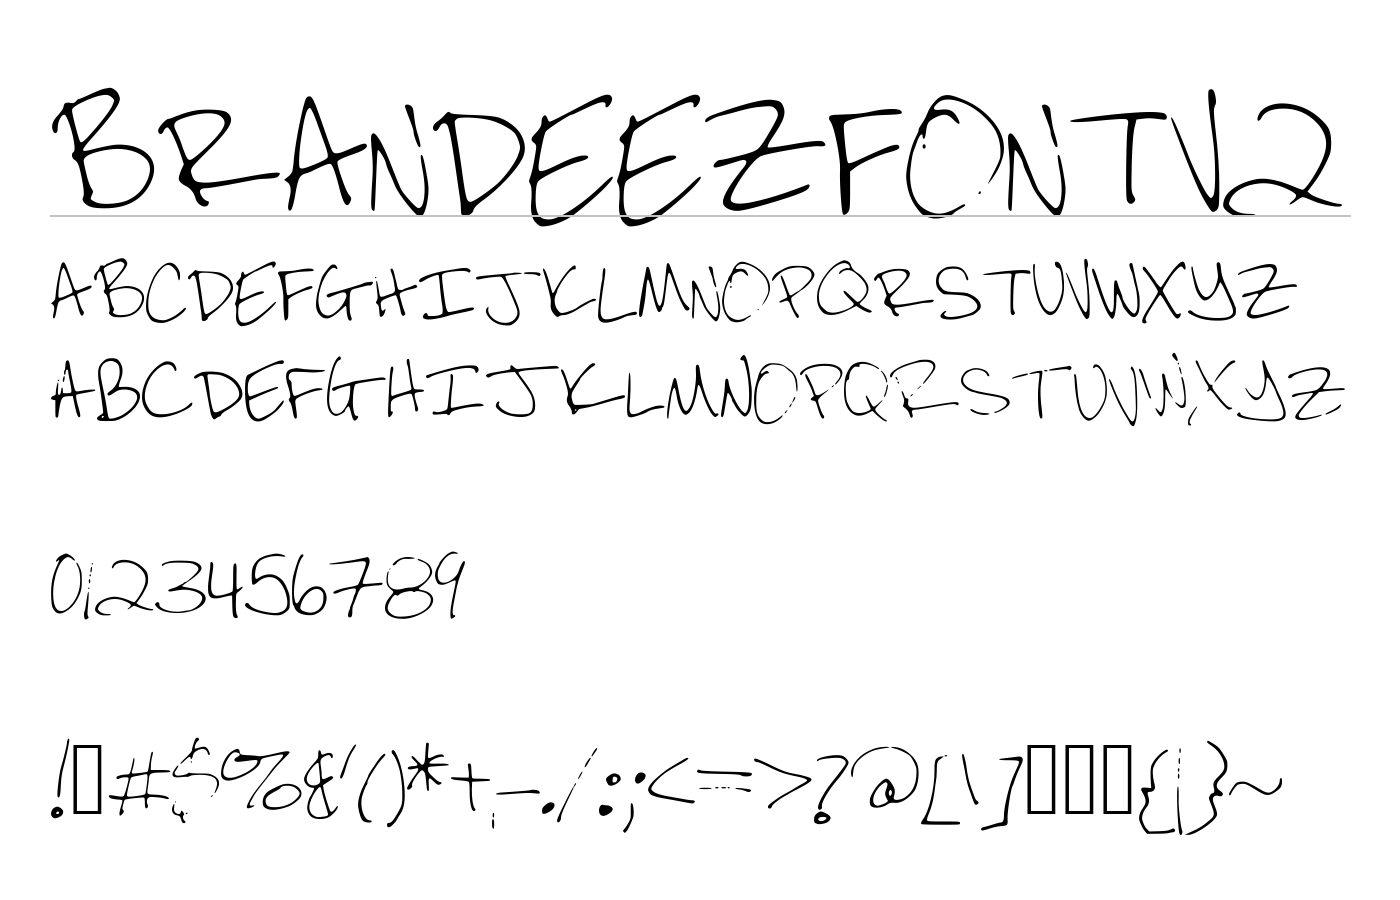 BRANDEEZFONTV2
ABCDEFGHIJKLMNOPQRSTUVWXYZ
ABCDEFGHIJKLMNOPQRSTUVWXYZ
0123456789
!▯#$%&'()*+,-./:;<=>?@[\]▯▯▯{|}~